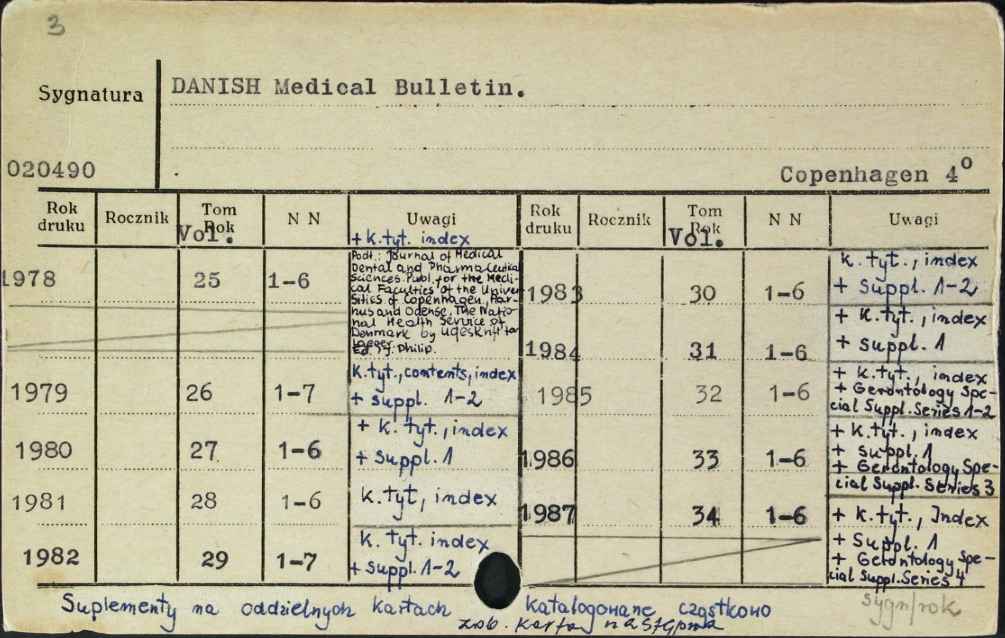 3
Sygnatura
DANISH Medical Bulletin.
020490
Copenhagen 4°
Rok druku Rocznik Tom Rok Vol. N N Uwagi
+ k. tyt. index
1978 25 1-6
Podt.: Journal of Medical
Dental and Pharmaceutical
Sciences. Publ. for the Medi-
cal Faculties of the Univer-
sities of Copenhagen, Aar-
hus and Odense, The Natio-
nal Health Service of
Denmark by Ugeskrift for
Laeger.
Ed. J. Philip.
1979 26 1-7 k. tyt., contents, index
+ suppl. 1-2
1980 27 1-6 + k. tyt., index
+ suppl. 1
1981 28 1-6 k. tyt, index
1982 29 1-7 k. tyt. index
+ suppl. 1-2
Rok druku Rocznik Tom Rok Vol. N N Uwagi
1983 30 1-6 k. tyt., index
+ suppl. 1-2
1984 31 1-6 + k. tyt., index
+ suppl. 1
1985 32 1-6 + k. tyt., index
+ Gerontology Spe-
cial Suppl. Series 1-2
1986 33 1-6 + k. tyt., index
+ suppl. 1
+ Gerontology Spe-
cial Suppl. Series 3
1987 34 1-6 + k. tyt., Index
+ Suppl. 1
+ Gerontology Spe-
cial Suppl. Series 4
Suplementy na oddzielnych kartach katalogowane cząstkowo
sygn/rok
zob. karta następna